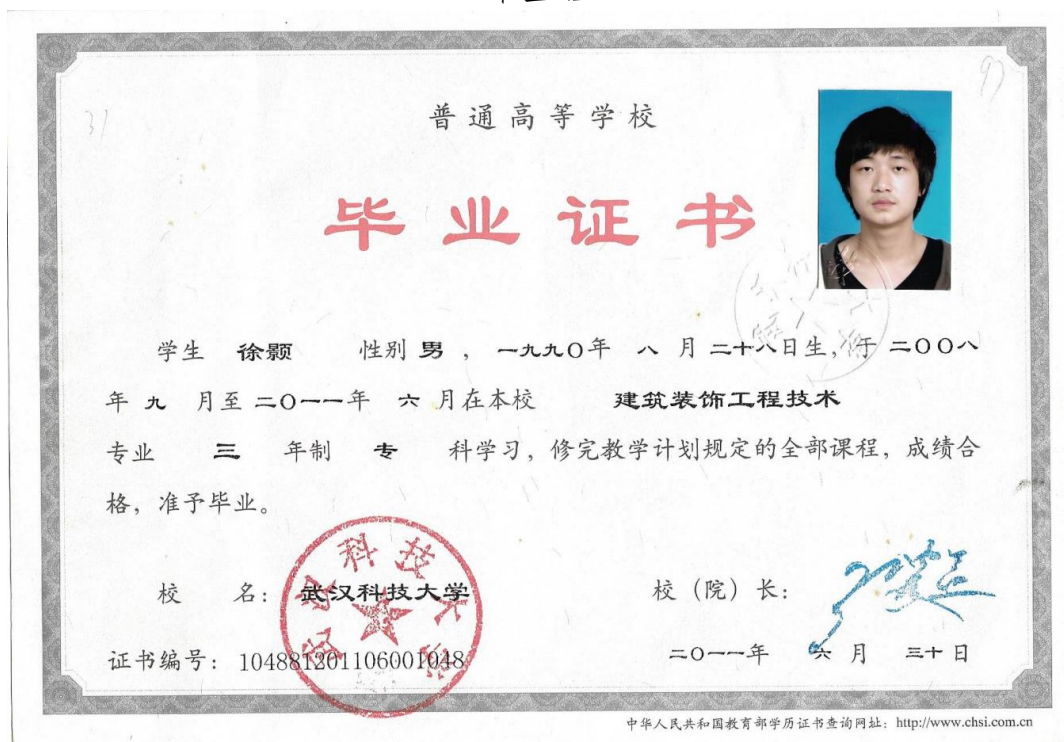 普通高等学校
毕业证书
学生 徐颢 性别 男 , 一九九〇年 八 月 二十八日生, 于 二〇〇八
年 九 月至 二〇一一年 六 月在本校 建筑装饰工程技术
专业 三 年制 专 科学习, 修完教学计划规定的全部课程, 成绩合
格, 准予毕业。
武汉科技大学
校 名: 武汉科技大学 校 (院) 长:
证书编号: 104881201106001048 二〇一一年 六 月 三十 日
中华人民共和国教育部学历证书查询网址: http://www.chsi.com.cn